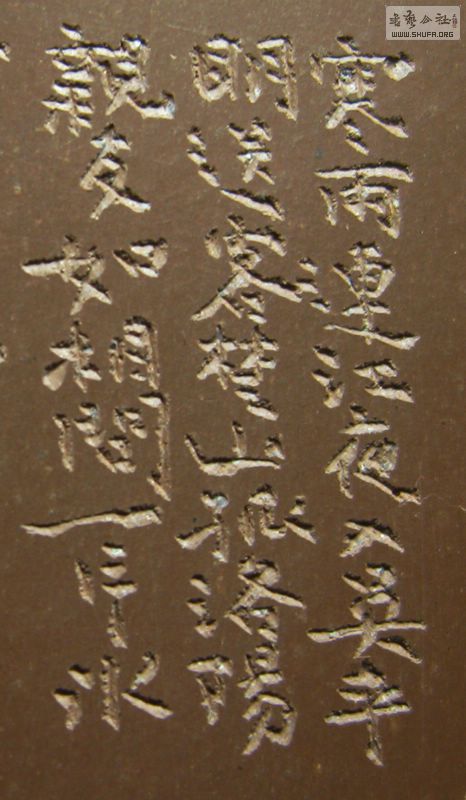 書藝公社
WWW.SHUFA.ORG
寒雨連江夜入吳平
明送客楚山孤洛陽
親友如相問一片冰